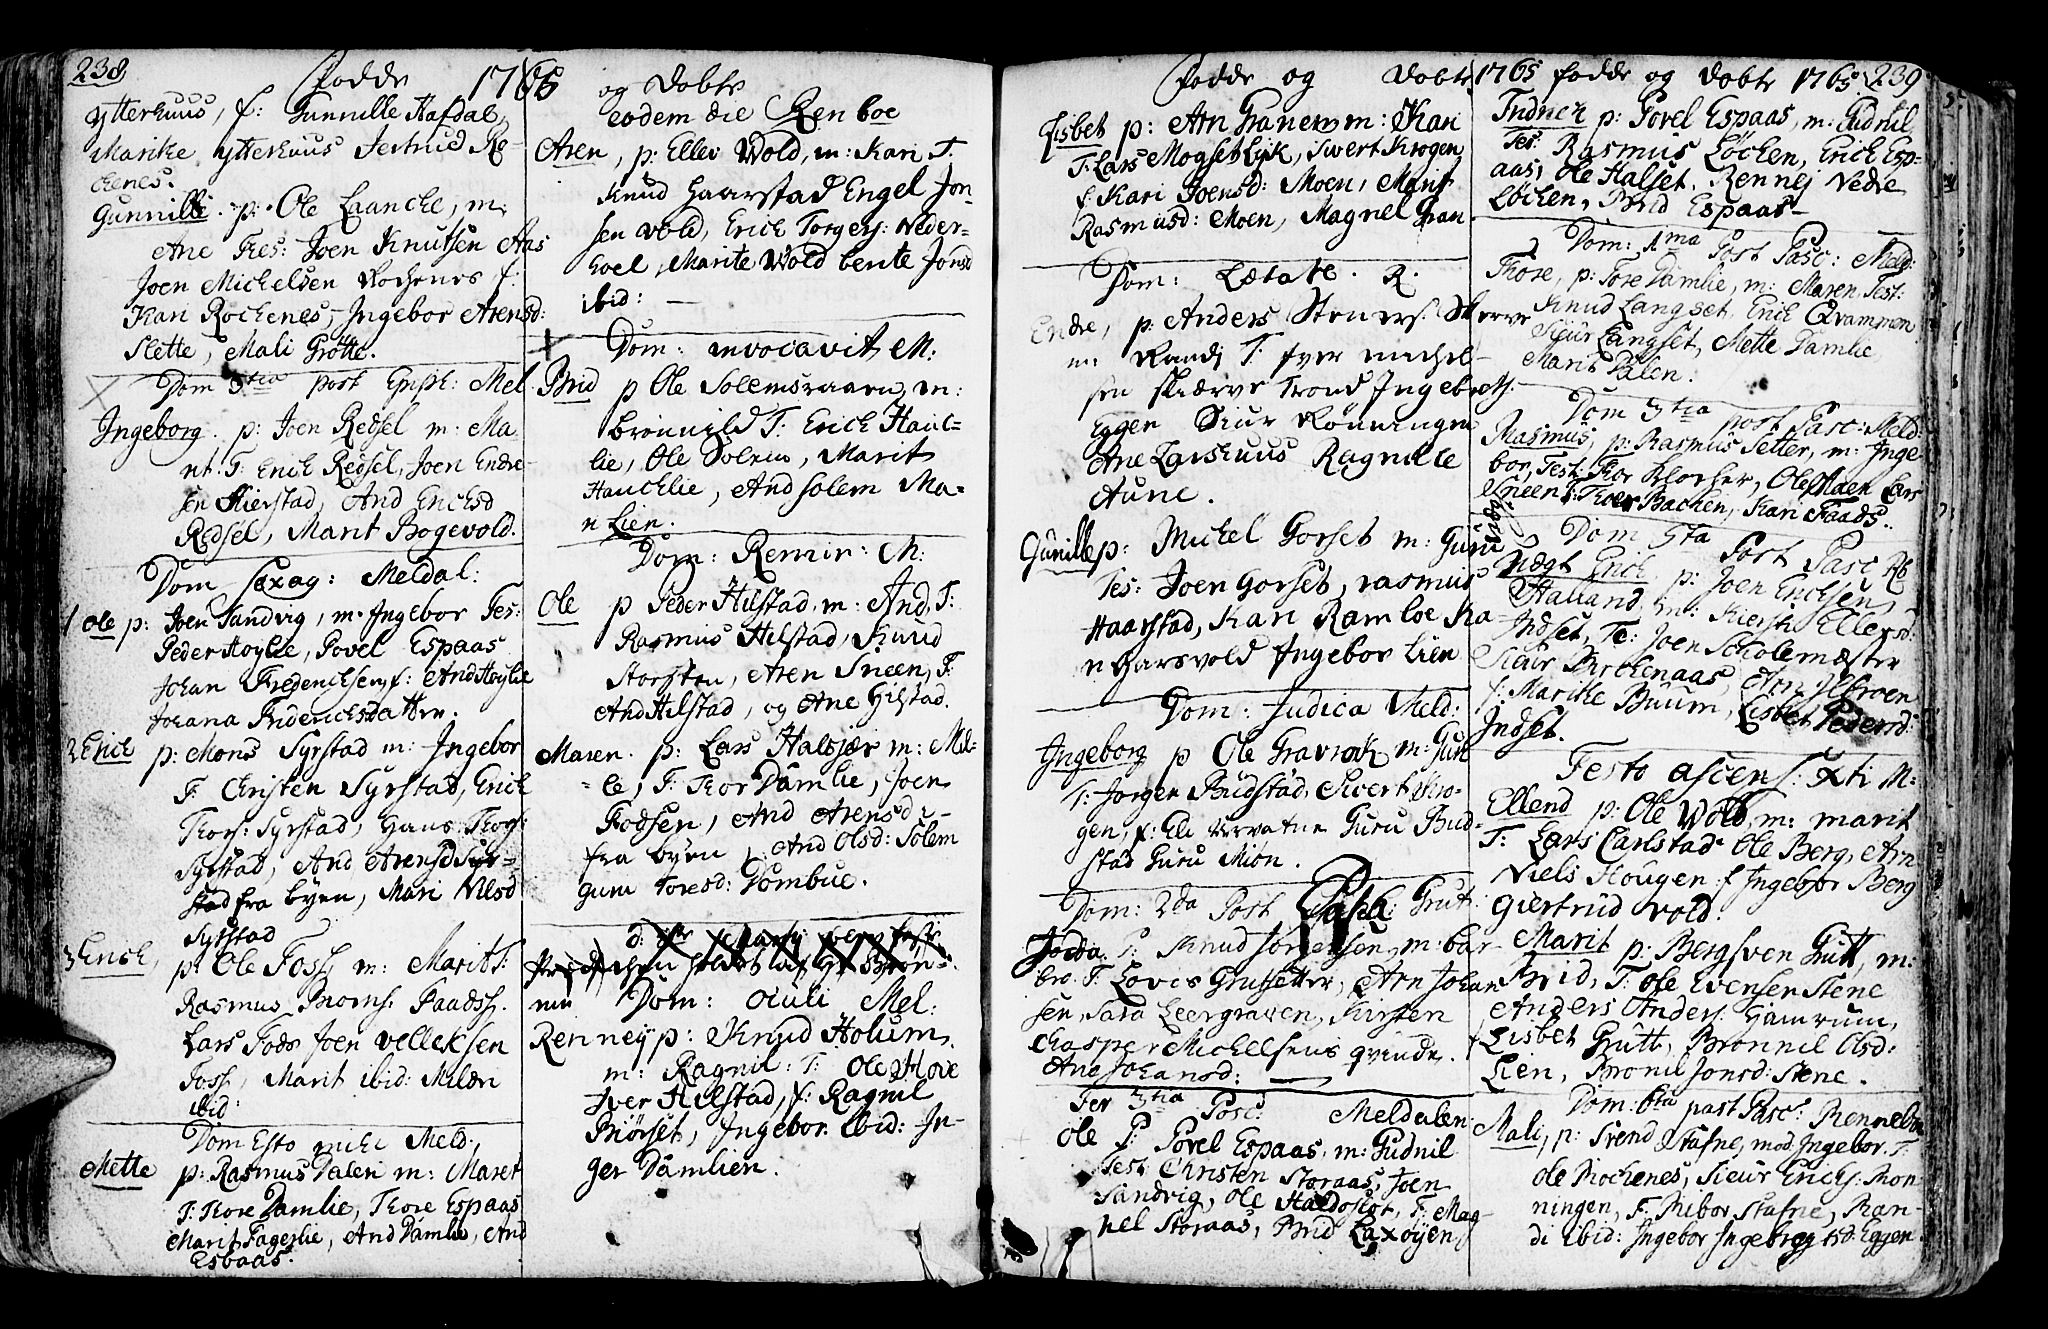 238
Fødde 1765 og Døbte
Ytterhuus, f: Gunnille Hafdal,
Maritte Ytterhuus Jertrud Ro-
chenes.
Gunnille. p: Ole Laancke, m:
Ane Tes: Joen Knutsen Aas
Joen Michelsen Rochenes f:
Kari Rochenes, Ingebor Arensd:
Slette, Mali Grötte.
Dom 3tia post Epiph: Mel
Ingeborg. p: Joen Redsel m: Ma
rit. T: Erich Redsel, Joen Endre-
sen Kierstad, And Erichsd
Redsel, Marit Bogevold.
Dom Sexag: Meldal:
1 Ole p: Joen Sandvig, m. Ingebor Tes:
Peder Hoylie, Povel Espaas
Johan Frederichsen, f: And Hoylie
Johana Friderichsdatter.
2 Erich p: Mons Syrstad m: Ingebor
T: Christen Syrstad, Erich
Thors: Syrstad, Hans Thors:
Syrstad, And Arensd Syr-
stad fra byen, Mari Nilsd
Syrstad
3 Erich, p: Ole Foss m: Marit T:
Rasmus Paadss.
Lars Joen Velleksen
Foss, Marit ibid: Milæn
ibid:
Dom Esto mihi Meld:
Mette p: Rasmus Dalen m: Maret
T: Thore Damlie, Thore Espaas
Marit Fageslie, And Damlie, And
Esbaas.
eodem die Renboe
Aren, p: Ellev Wold, m: Kari T.
Knud Haarstad Engel Jon-
sen Vold, Erich Torgers: Neder-
hoel, Marite Wold bente Jonsd
ibid: —
Dom: invocavit M:
Brid p Ole Solemsraaen, m:
Brönnild T: Erich Hauc-
lie, Ole Solem, Marit
Hauchlie, And Solem Ma-
ri Lien.
Dom: Remin: M:
Ole p Peder Hilstad, m: And, T:
Rasmus Hilstad, Knud
Storsten, Aren Sneen, T:
And Hilstad, og Ane Hilstad.
Maren. p: Lars Halsjær m: Mel-
le, T: Thor Damlie, Joen
Fodsen, And Arensd
fra byen, And Olsd: Solem
Guru Toresd: Dombue.
Dom: Oculi Mel:
Renney p: Knud Holum,
m: Ragnil: T: Ole Hove
Iver Hilstad, f: Ragnil
Biörset, Ingebor ibid: In-
ger Damlien.
Fødde og Døbte 1765
Lisbet p: Arn Granem m: Kari
T: Lars Mogset Lyk, Sivert Krogen
f: Kari Joensd: Moen, Marit
Rasmusd: Moen, Magnel Gran.
Dom: Lætate. R.
Endre, p: Anders Steners: Skerve
m: Randi T: Iver michel-
sen Skiærve Trond Ingebreth:
Eggen Siur Rönningen
Ane Larshuus Ragnille
Aune.
Gunille p: Michel Gorset m: Guru
Tes: Joen Gorset, rasmus
Haarstad, Kari Ramloe Ka-
ri Garsvold Ingebor Lien
Dom: Judica Meld:
Ingeborg p Ole Gravrok m: Guru
T: Jorgen Budstad, Sivert Kro-
gen, f: Eli Vervatne Guru Bud-
stad Guru Mion.
Dom: 2da Post Pasch: Grut:
p: Knud Jörgensen m: bar-
bro. T. Lovis Grutsetter, Arn Johan
sen, Sara Leergraven, Kirsten
Chasper Michelsens qvinde,
Ane Johansd: —
Fer 3tia Pasc: Meldalen
Ole P: Povel Espaas, m: Gudnil
Test Christen Storaas, Joen
Sandvig, Ole Haldoset, T: Mag-
nel Storaas, Brid Laxöyen
fødde og Døbte 1765. 239
Indrich p: Povel Espaas, m: Gudnil
Tes: Rasmus Löchen, Erich Esp-
aas, Ole Halset, Rennej Nedre
Löchen, Brid Espaas—
Dom: 1ma Post Pasc: Meld:
Thore, p: Tore Damlie, m: Maren Test:
Knud Langset, Erich Qvammen
Sieur Langset, Mette Damlie
Marit Dalen.
Dom 3tia post Pasc: Meld:
Rasmus, p: Rasmus Setter, m: Inge
bor, Test: Thor Klocher, Ole Moen Lars
Sneen f: Thoer Bachen, Kari Faads.
Dom 5ta Post Pasc Rb
Uægt Erich p: Joen Erichsen,
Haltand, m: Kiersti Ellevsd:
Indset, Te: Joen Scholemæster
Sieur Birchenaas, Arn
f: Maritte Buum, Lisbet Pedersd:
Indset.
Festo ascens: Xti M:
Ellend p: Ole Wold, m: marit
T: Lars Carlstad Ole Berg, Arn
Niels Hougen f Ingebor Berg
Giertrud vold.
Marit p: Bergsven Grutt, m:
Brid, T: Ole Evensen Stene
Anders Anders: Gamrum,
Lisbet Grutt, Bronnil Olsd:
Lien, Bronil Jonsd: Stene.
Dom: 6ta past Pasc: Rennebu
Mali, p: Svend Stafne, mod. Ingebor. T:
Ole Rochenes, Sieur Erichs: Ron
ningen, F. Ribor Stafne, Ran-
di ibid: Ingebor Ingebregtsd: Eggen